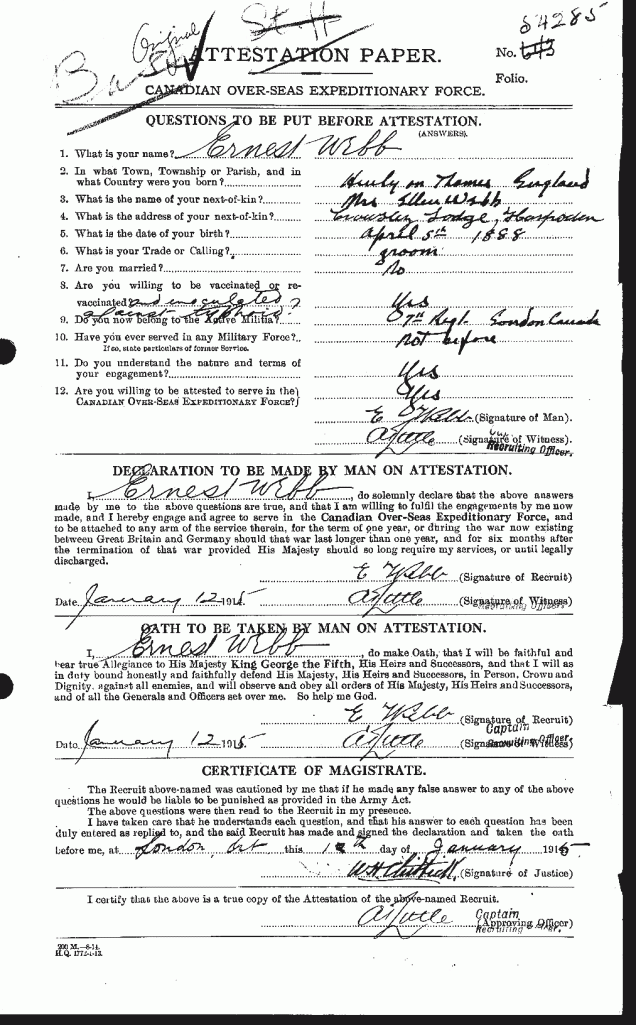 54285
Original
Staff
ATTESTATION PAPER.
No.
Folio.
CANADIAN OVER-SEAS EXPEDITIONARY FORCE.
QUESTIONS TO BE PUT BEFORE ATTESTATION.
(ANSWERS).
1. What is your name? Ernest Webb
2. In what Town, Township or Parish, and in
what Country were you born? Henly on Thames England
3. What is the name of your next-of-kin? Mrs Ellen Webb
4. What is the address of your next-of-kin? Lodge,
5. What is the date of your birth? April 5th 1888
6. What is your Trade or Calling? groom
7. Are you married? No
8. Are you willing to be vaccinated or re-
vaccinated and inoculated ? Yes
against typhoid
9. Do you now belong to the Active Militia? 7th Regt. London Canada
10. Have you ever served in any Military Force? Not before
If so, state particulars of former Service.
11. Do you understand the nature and terms of
your engagement? Yes
12. Are you willing to be attested to serve in the Yes
CANADIAN OVER-SEAS EXPEDITIONARY FORCE?
E Webb (Signature of Man).
(Signature of Witness).
Recruiting Officer.
DECLARATION TO BE MADE BY MAN ON ATTESTATION.
I, Ernest Webb, do solemnly declare that the above answers
made by me to the above questions are true, and that I am willing to fulfil the engagements by me now
made, and I hereby engage and agree to serve in the Canadian Over-Seas Expeditionary Force, and
to be attached to any arm of the service therein, for the term of one year, or during the war now existing
between Great Britain and Germany should that war last longer than one year, and for six months after
the termination of that war provided His Majesty should so long require my services, or until legally
discharged.
E Webb (Signature of Recruit)
Date January 12 1915 (Signature of Witness)
Recruiting Officer
OATH TO BE TAKEN BY MAN ON ATTESTATION.
I, Ernest Webb, do make Oath, that I will be faithful and
bear true Allegiance to His Majesty King George the Fifth, His Heirs and Successors, and that I will as
in duty bound honestly and faithfully defend His Majesty, His Heirs and Successors, in Person, Crown and
Dignity, against all enemies, and will observe and obey all orders of His Majesty, His Heirs and Successors,
and of all the Generals and Officers set over me. So help me God.
E Webb (Signature of Recruit)
Captain
Recruiting Officer.
Date January 12 1915 (Signature of Witness)
CERTIFICATE OF MAGISTRATE.
The Recruit above-named was cautioned by me that if he made any false answer to any of the above
questions he would be liable to be punished as provided in the Army Act.
The above questions were then read to the Recruit in my presence.
I have taken care that he understands each question, and that his answer to each question has been
duly entered as replied to, and the said Recruit has made and signed the declaration and taken the oath
before me, at London, Ont this 12th day of January 1915
(Signature of Justice)
I certify that the above is a true copy of the Attestation of the above-named Recruit.
Captain
(Approving Officer)
Recruiting Officer.
200 M.—8-14.
H.Q. 1772-4-13.